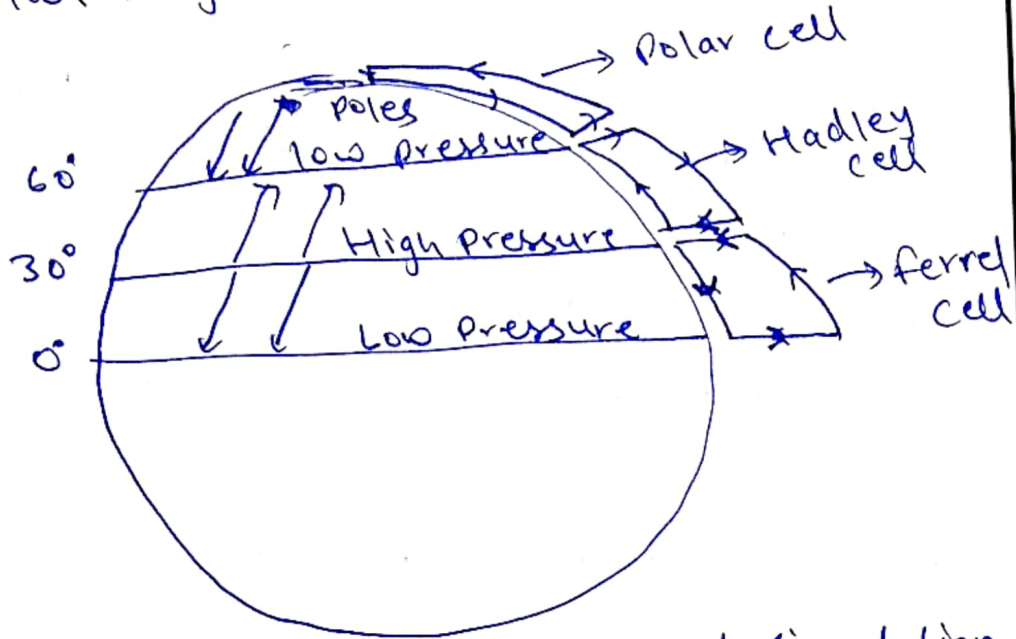 Polar cell
Poles
low pressure
60°
Hadley
cell
High pressure
30°
ferrel
cell
Low pressure
0°